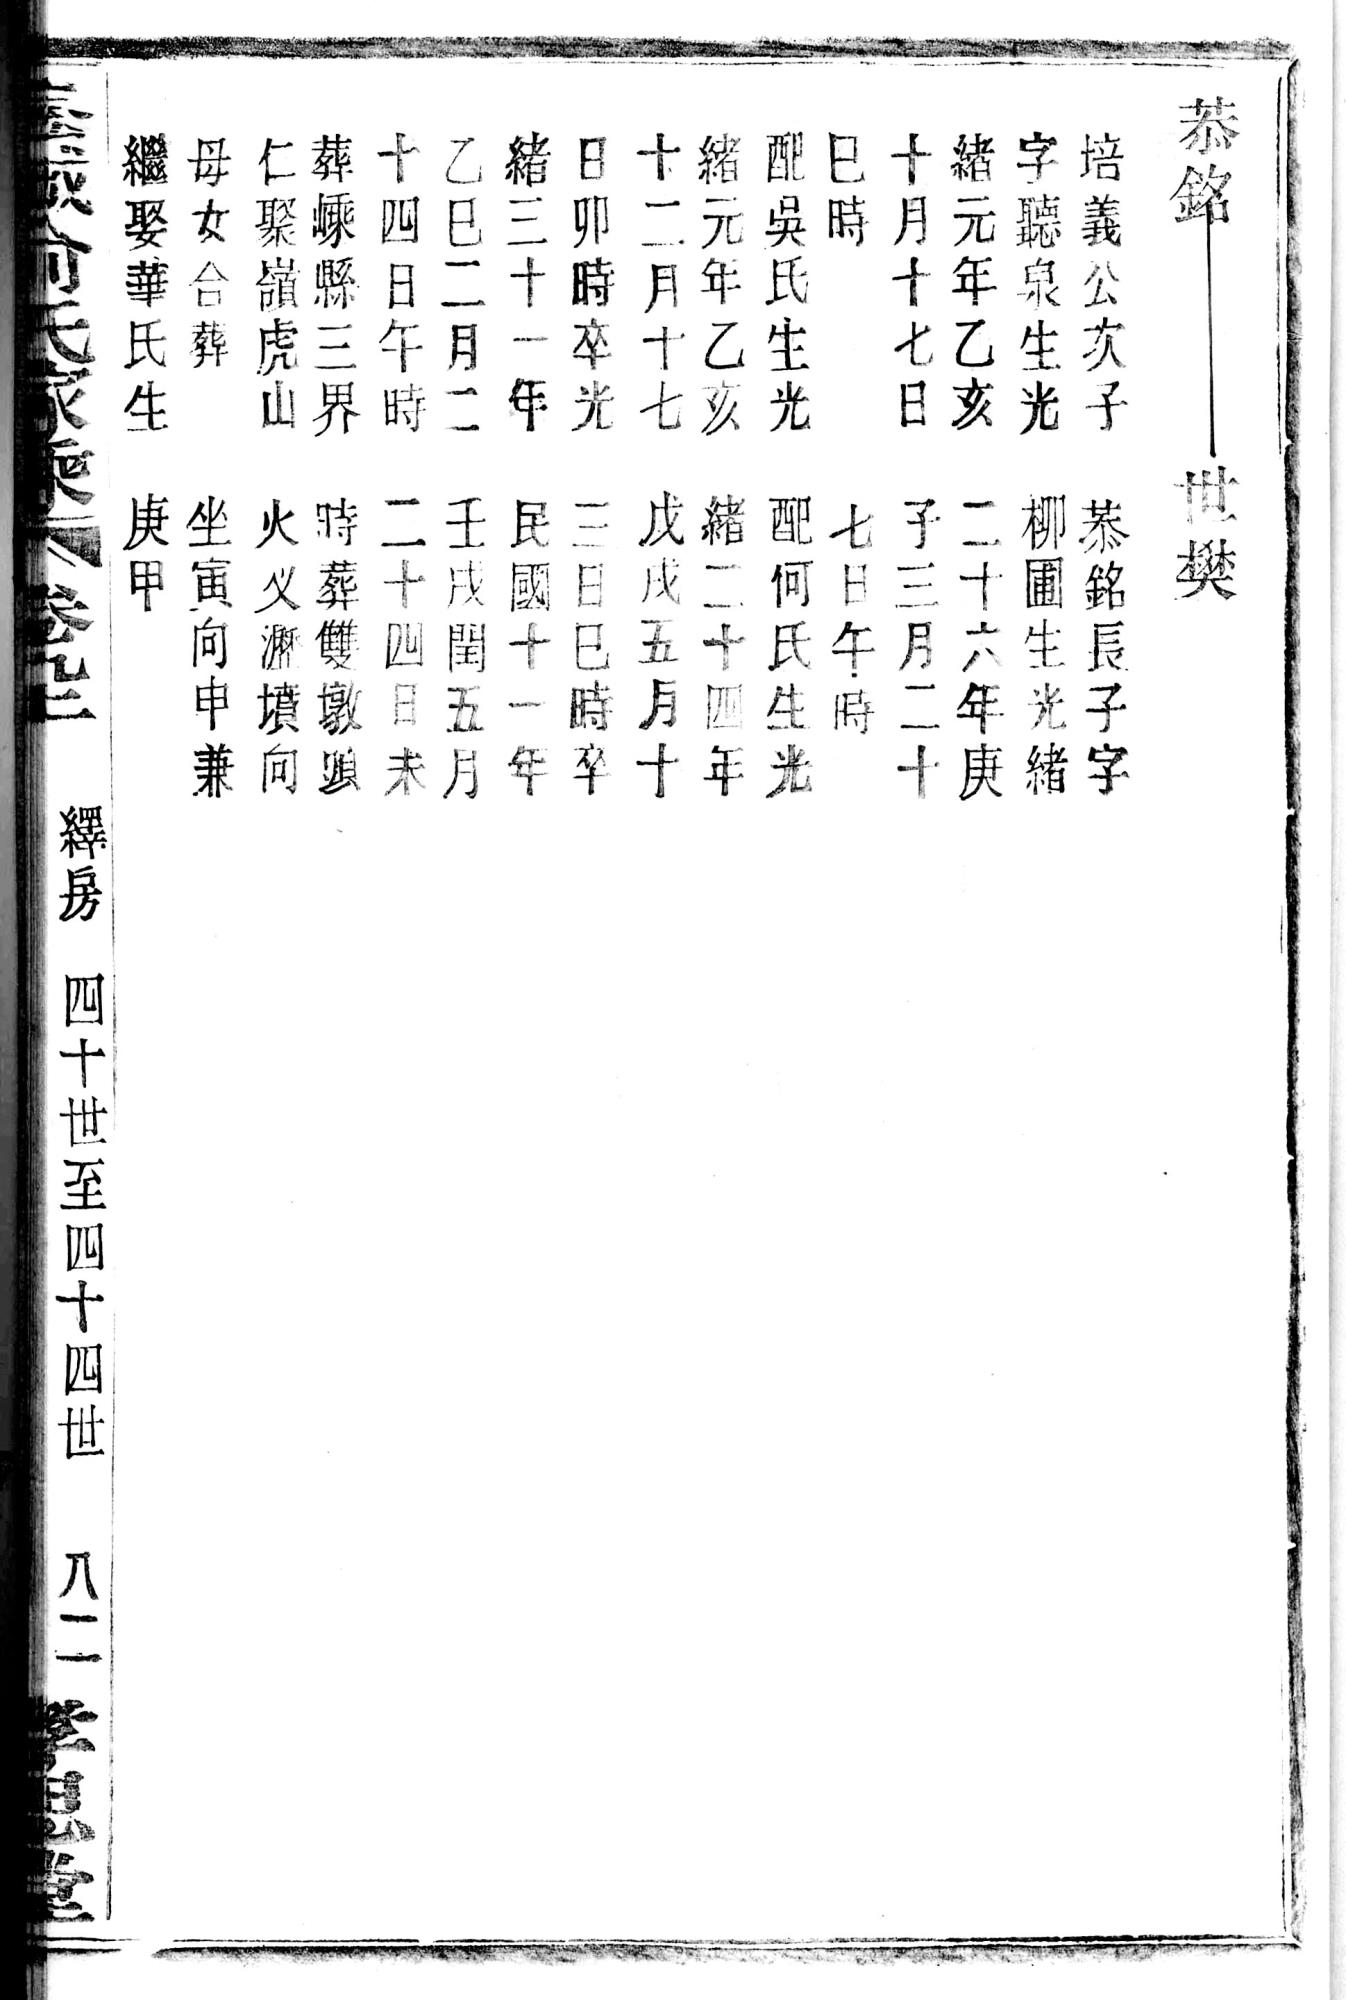 恭銘　世樊
培義公次子
字聽泉生光
緒元年乙亥
十月十七日
巳時
配吳氏生光
緒元年乙亥
十二月十七
日卯時卒光
緒三十一年
乙巳二月二
十四日午時
葬嵊縣三界
仁聚嶺虎山
母女合葬
繼娶華氏生
恭銘長子字
柳圃生光緒
二十六年庚
子三月二十
七日午時
配何氏生光
緒二十四年
戊戌五月十
三日巳時卒
民國十一年
壬戌閏五月
二十四日未
時葬雙墩頭
火义漖墳向
坐寅向申兼
庚甲
俞氏家乘　卷九二
繹房　四十世至四十四世　八二
孝思堂